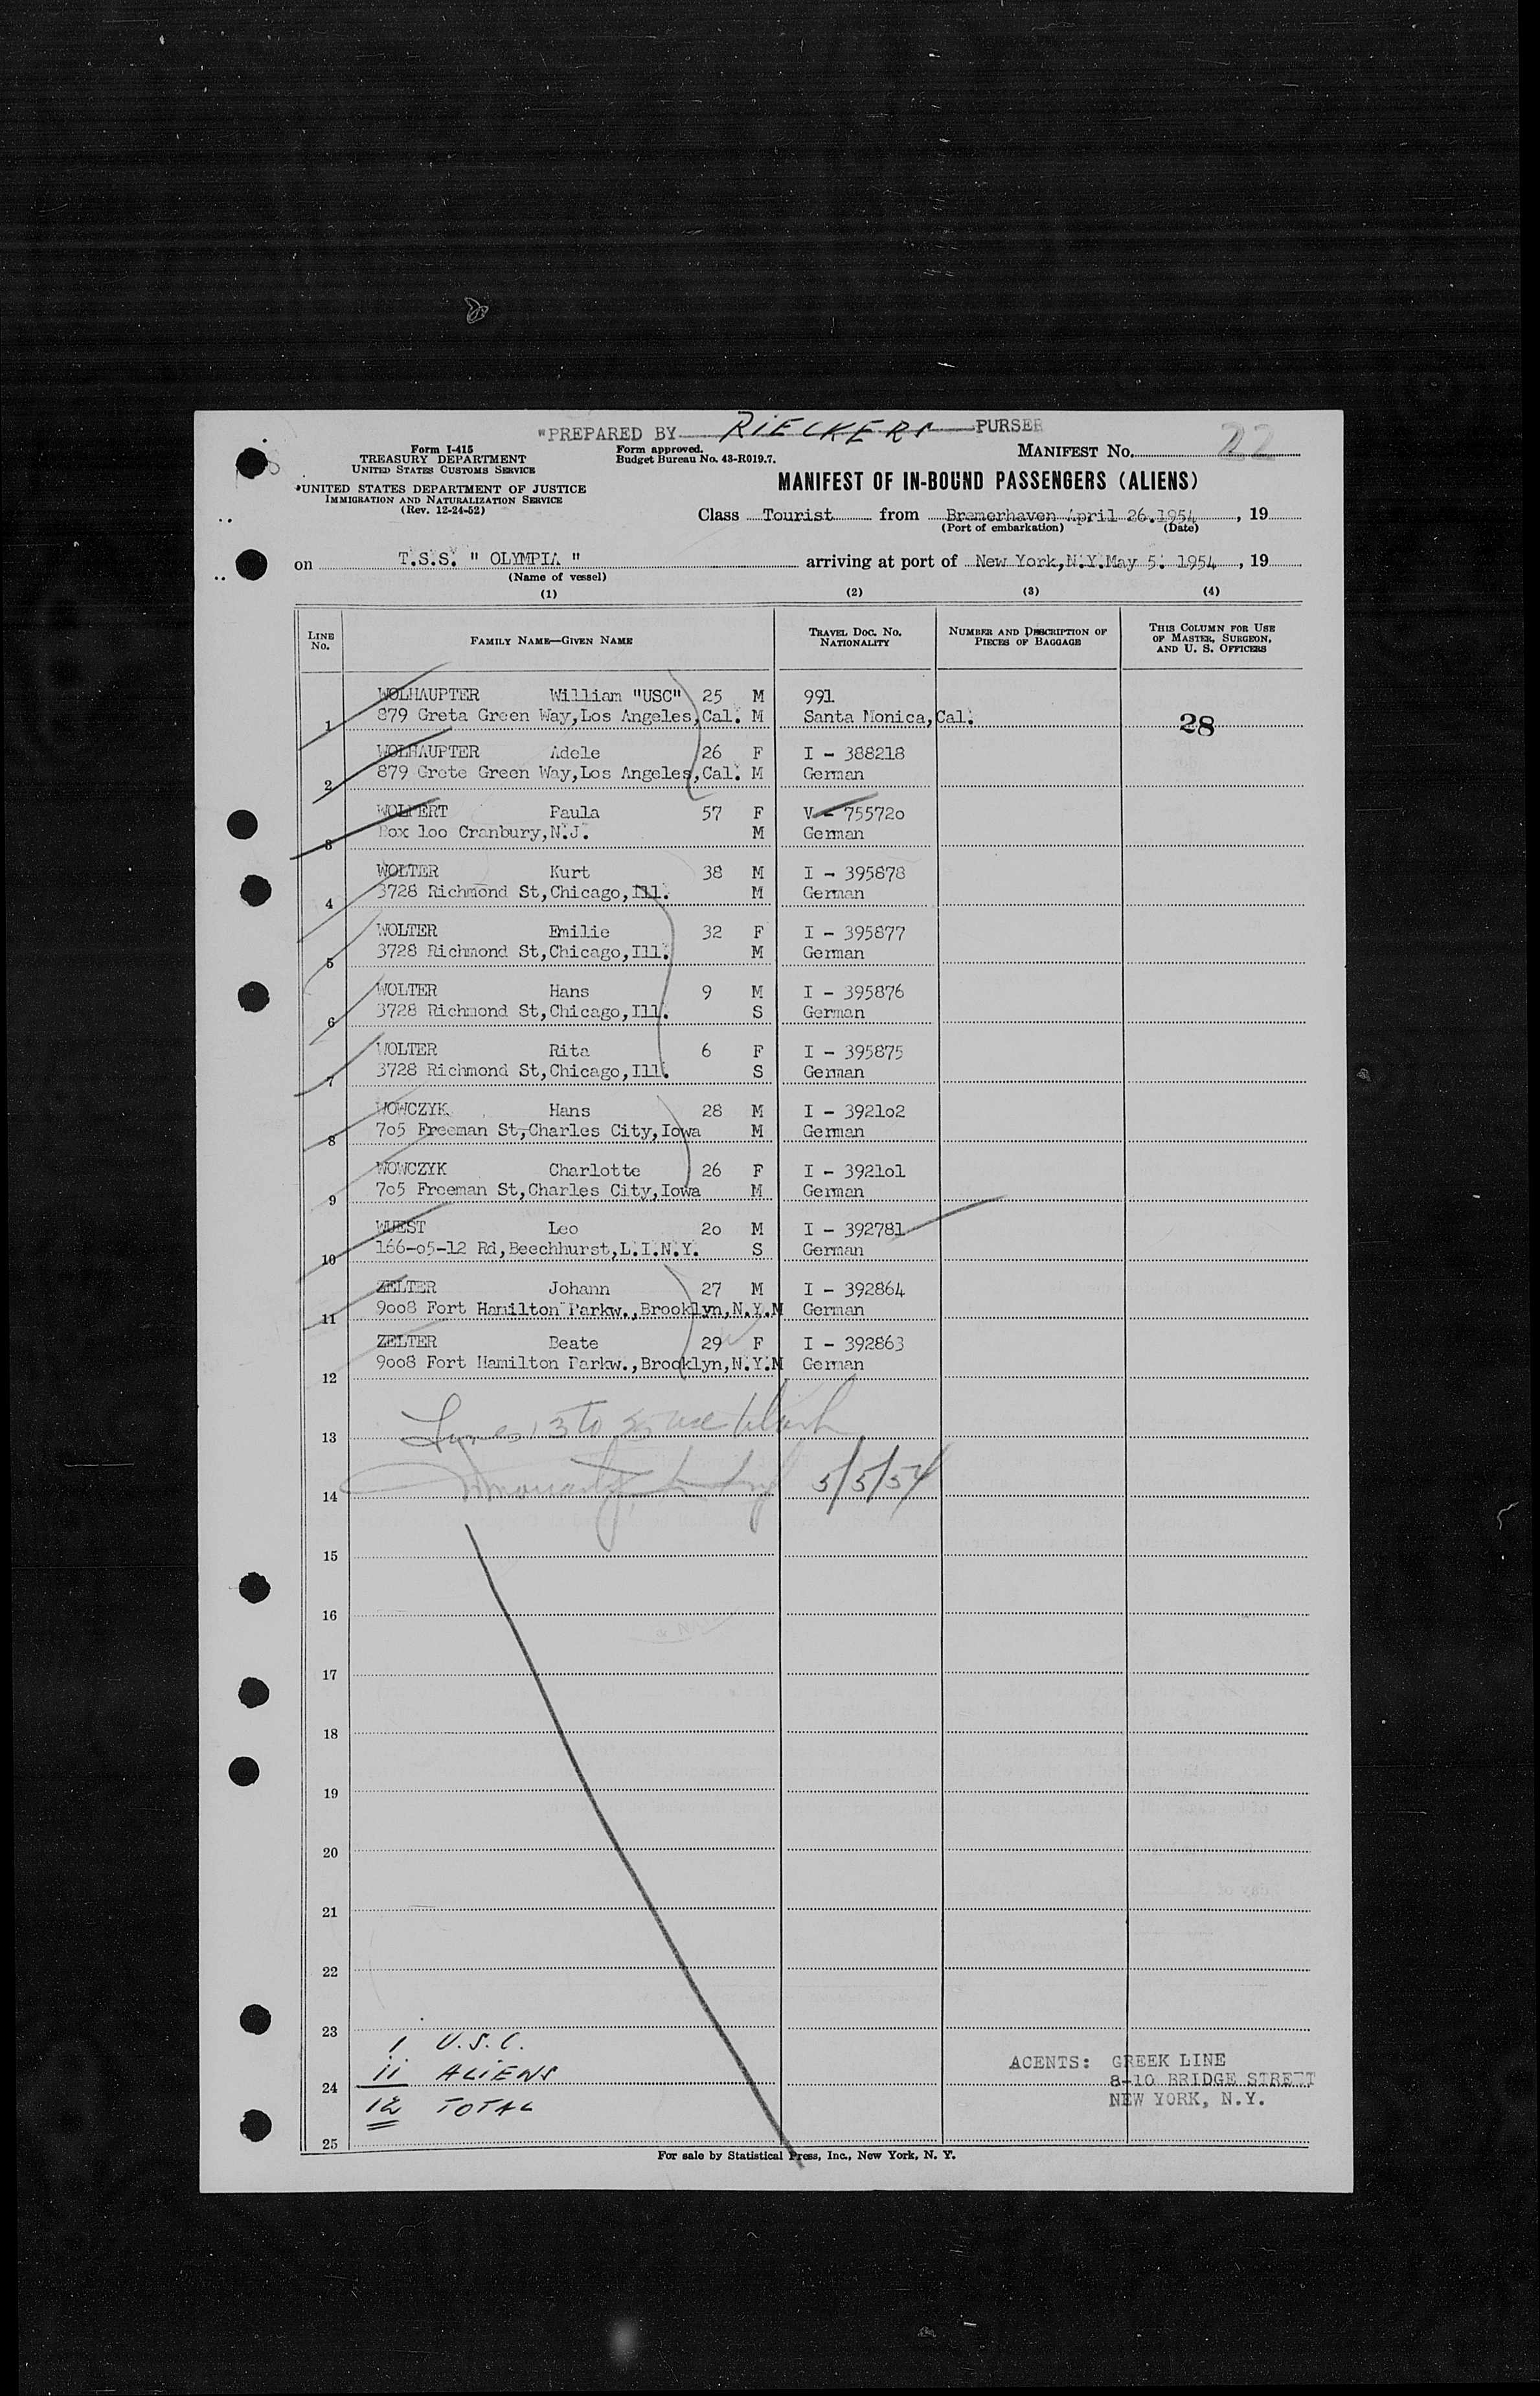 "PREPARED BY RIECKERS PURSER
Form I-415
TREASURY DEPARTMENT
UNITED STATES CUSTOMS SERVICE
Form approved.
Budget Bureau No. 43-R019.7.
MANIFEST No. 22
UNITED STATES DEPARTMENT OF JUSTICE
IMMIGRATION AND NATURALIZATION SERVICE
(Rev. 12-24-52)
MANIFEST OF IN-BOUND PASSENGERS (ALIENS)
Class Tourist from Bremerhaven April 26.1954, 19
(Port of embarkation) (Date)
on T.S.S. " OLYMPIA " arriving at port of New York,N.Y.May 5. 1954, 19
(Name of vessel)
(1) (2) (3) (4)
LINE No. FAMILY NAME—GIVEN NAME TRAVEL DOC. NO. NATIONALITY NUMBER AND DESCRIPTION OF PIECES OF BAGGAGE THIS COLUMN FOR USE OF MASTER, SURGEON, AND U. S. OFFICERS
WOLHAUPTER William "USC" 25 M 991
1 879 Greta Green Way,Los Angeles,Cal. M Santa Monica,Cal. 28
WOLHAUPTER Adele 26 F I - 388218
2 879 Grete Green Way,Los Angeles,Cal. M German
WOLPERT Paula 57 F V - 755720
3 Box loo Cranbury,N.J. M German
WOLTER Kurt 38 M I - 395878
4 3728 Richmond St,Chicago,Ill. M German
WOLTER Emilie 32 F I - 395877
5 3728 Richmond St,Chicago,Ill. M German
WOLTER Hans 9 M I - 395876
6 3728 Richmond St,Chicago,Ill. S German
WOLTER Rita 6 F I - 395875
7 3728 Richmond St,Chicago,Ill. S German
WOWCZYK Hans 28 M I - 3921o2
8 7o5 Freeman St,Charles City,Iowa M German
WOWCZYK Charlotte 26 F I - 3921o1
9 7o5 Freeman St,Charles City,Iowa M German
WUEST Leo 2o M I - 392781
10 166-o5-12 Rd,Beechhurst,L.I.N.Y. S German
ZELTER Johann 27 M I - 392864
11 9oo8 Fort Hamilton Parkw.,Brooklyn,N.Y.M German
ZELTER Beate 29 F I - 392863
12 9oo8 Fort Hamilton Parkw.,Brooklyn,N.Y.M German
13 Lines 13 to 25 are blank
14 5/5/54
15
16
17
18
19
20
21
22
23
1 U.S.C.
11 ALIENS
24
12 TOTAL
25
AGENTS: GREEK LINE
8-10 BRIDGE STREET
NEW YORK, N.Y.
For sale by Statistical Press, Inc., New York, N. Y.